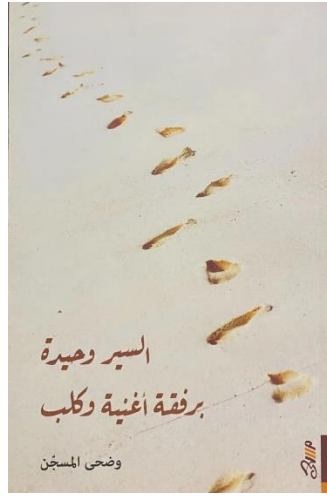 السير وحيدة
برفقة أغنية وكلب
وضحى المسجّن